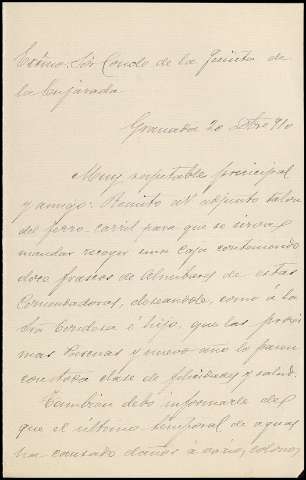 Excmo. Sor Conde de la Quinta de
la Enjarada
Granada 20 Dbre 910
Muy respetable principal
y amigo: Remito el adjunto talon
del ferro-carril para que se sirva
mandar recoger una caja conteniendo
doce frascos de Almibares de estas
Comendadoras, deseandole, como á la
Sra Condesa é hijo, que las proxi
mas Pascuas y nuevo año lo pasen
con toda clase de felicidades y salud.
Tambien debo informarle del
que el ultimo temporal de aguas
ha causado daños á varios colonos,